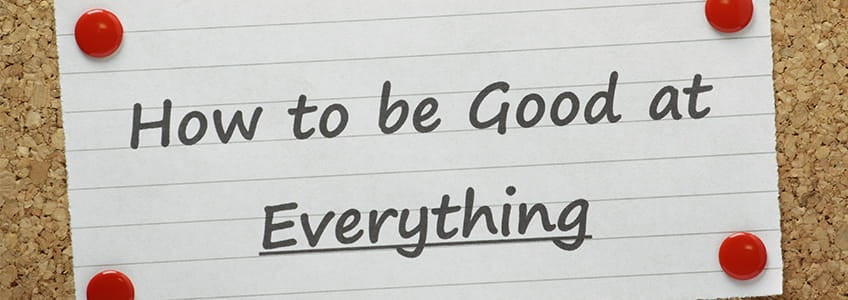 How to be Good at
Everything